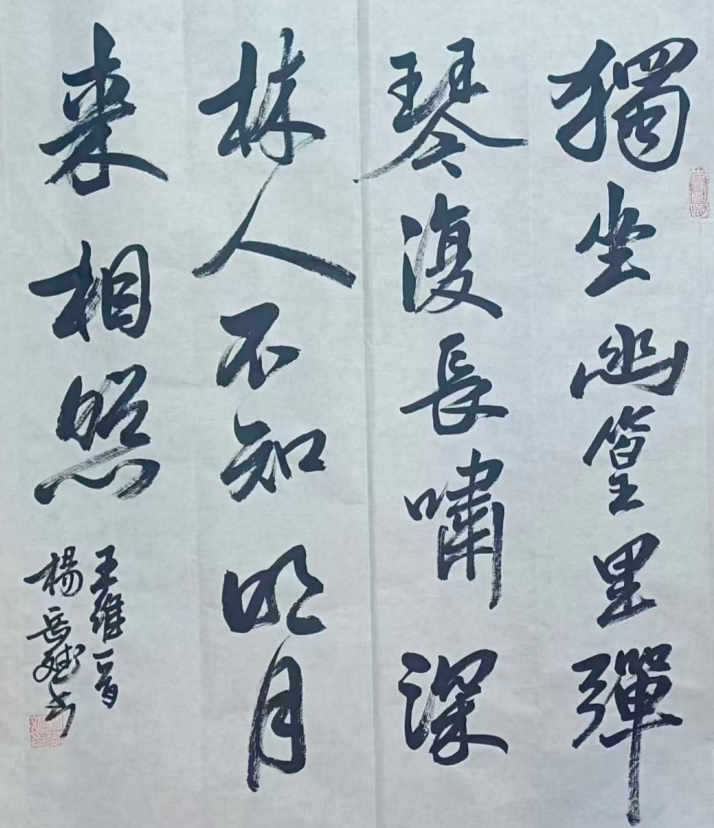 獨坐幽篁里彈
琴復長嘯深
林人不知明月
来相照
王維一首
楊岳斌书